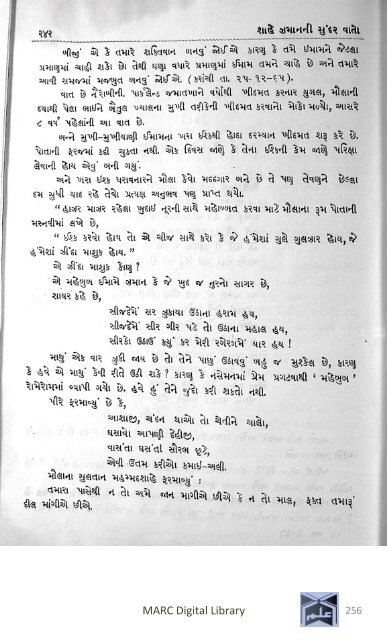 ૨૪૨ શાહે ઝમાનની સુંદર વાતો
બીજું એ કે તમારે શક્તિવાન બનવું જોઈએ કારણ કે તમે ઇમામને જેટલા
પ્રમાણમાં ચાહી શકો છો તેથી ઘણા વધારે પ્રમાણમાં ઈમામ તમને ચાહે છે અને તમારે
આવી સમજમાં મજબુત બનવું જોઈએ. (કરાંચી તા. ૨૫-૧૨-૬૫).
વાત છે નૈરોબીની. પાર્કલેન્ડ જમાતખાને વર્ષોથી ખીદમત કરનાર યુગલ, મૌલાની
દયાથી પેલા લાઇને બૈતુલ ખ્યાલના મુખી તરીકેની ખીદમત કરવાનો મોકો મળ્યો, આસરે
૮ વર્ષ પહેલાંની આ વાત છે.
બન્ને મુખી-મુખીયાણી ઈમામના ખરા ઇશ્કથી હોંશ દરમ્યાન ખીદમત શરૂ કરે છે.
પોતાની ફરજમાં કદી ચુકતા નથી. એક દિવસ જાણે કે તેના ઇશ્કની કેમ જાણે પરિક્ષા
લેવાની હોય એવું બની ગયું.
અને ખરા ઇશ્ક ધરાવનારને મૌલા કેવા મદદગાર બને છે તે પણ તેવણને છેલ્લા
દમ સુધી યાદ રહે તેવો પ્રત્યક્ષ અનુભવ પણ પ્રાપ્ત થયો.
“હાઝર નાઝર રહેલા ખુદાઈ નૂરની સાથે મહોબ્બત કરવા માટે મૌલાના રૂમ પોતાની
મસ્નવીમાં લખે છે,
“ ઇશ્ક કરવો હોય તો એ ચીજ સાથે કરો કે જે હંમેશાં ગુલે ગુલઝાર હોય, જે
હંમેશાં ઝીંદા માશુક હોય.”
એ ઝીંદા માશુક કોણ ?
એ મહેબુબ ઈમામે ઝમાન કે જે ખુદ જ નુરનો સાગર છે,
શાયર કહે છે,
સીજદેમેં સર ઝુકાયા ઉઠાના હરામ હય,
સીજદેમેં સીર ગીર પડે તો ઉઠાના મહાલ હય,
સીરકો ઉઠાઉં ક્યું કર મેરી રગેરગમેં યાર હય !
માથું એક વાર ઝુકી જાય છે તો તેને પાછું ઉઠાવવું બહુ જ મુશ્કેલ છે, કારણ
કે હવે એ માથું કેવી રીતે ઉઠી શકે ? કારણ કે નસેનમાં પ્રેમ પ્રગટવાથી ‘ મહેબુબ ’
રોમેરોમમાં વ્યાપી ગયો છે. હવે હું તેને જૂદો કરી શકતો નથી.
પીરે ફરમાવ્યું છે કે,
આશાજી, ચંદન થાઓ તો ચેતીને ચાલો,
ઘસાવો આપણી દેહીજી,
વાસંતા ઘસંતાં સૌરભ છૂટે,
એવી ઉતમ કરીઓ કમાઇ-અલી.
મૌલાના સુલતાન મહમ્મદશાહે ફરમાવ્યું :
તમારા પાસેથી ન તો અમે જાન માગીએ છીએ કે ન તો માલ, ફક્ત તમારૂં
દીલ માંગીએ છીએ.
MARC Digital Library
256